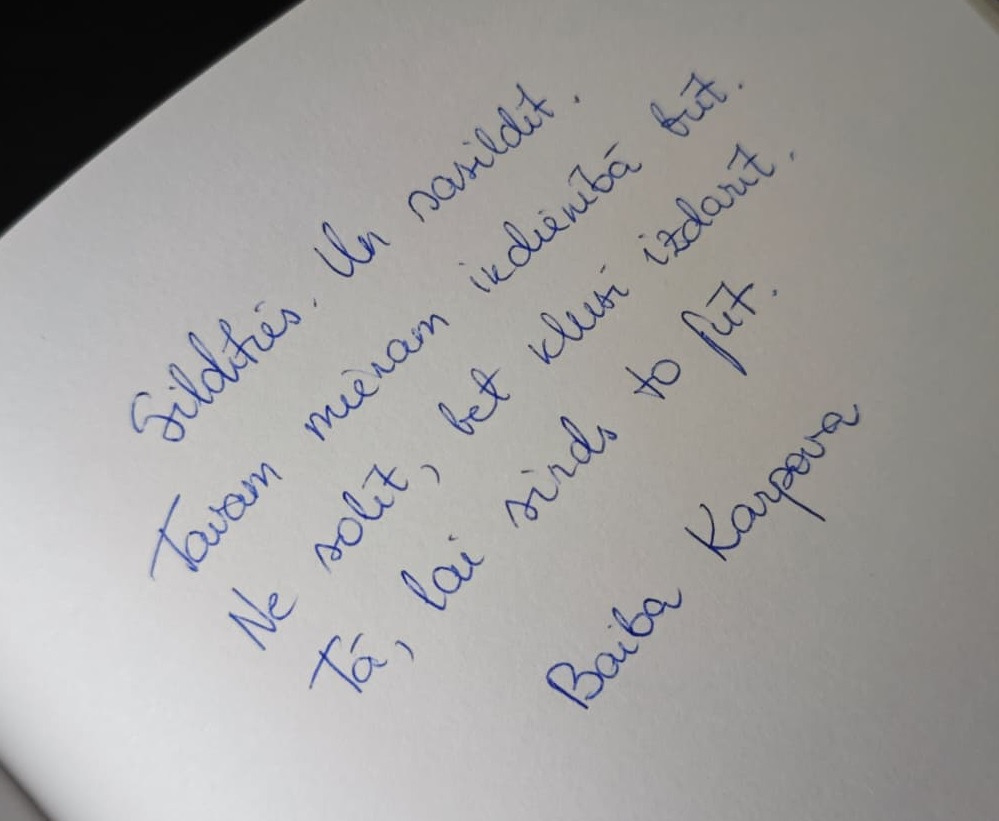 Sildīties. Un sasildīt.
Tavam mieram ikdienībā būt.
Ne solīt, bet klusi izdarīt.
Tā, lai sirds to jūt.
Baiba Karpova